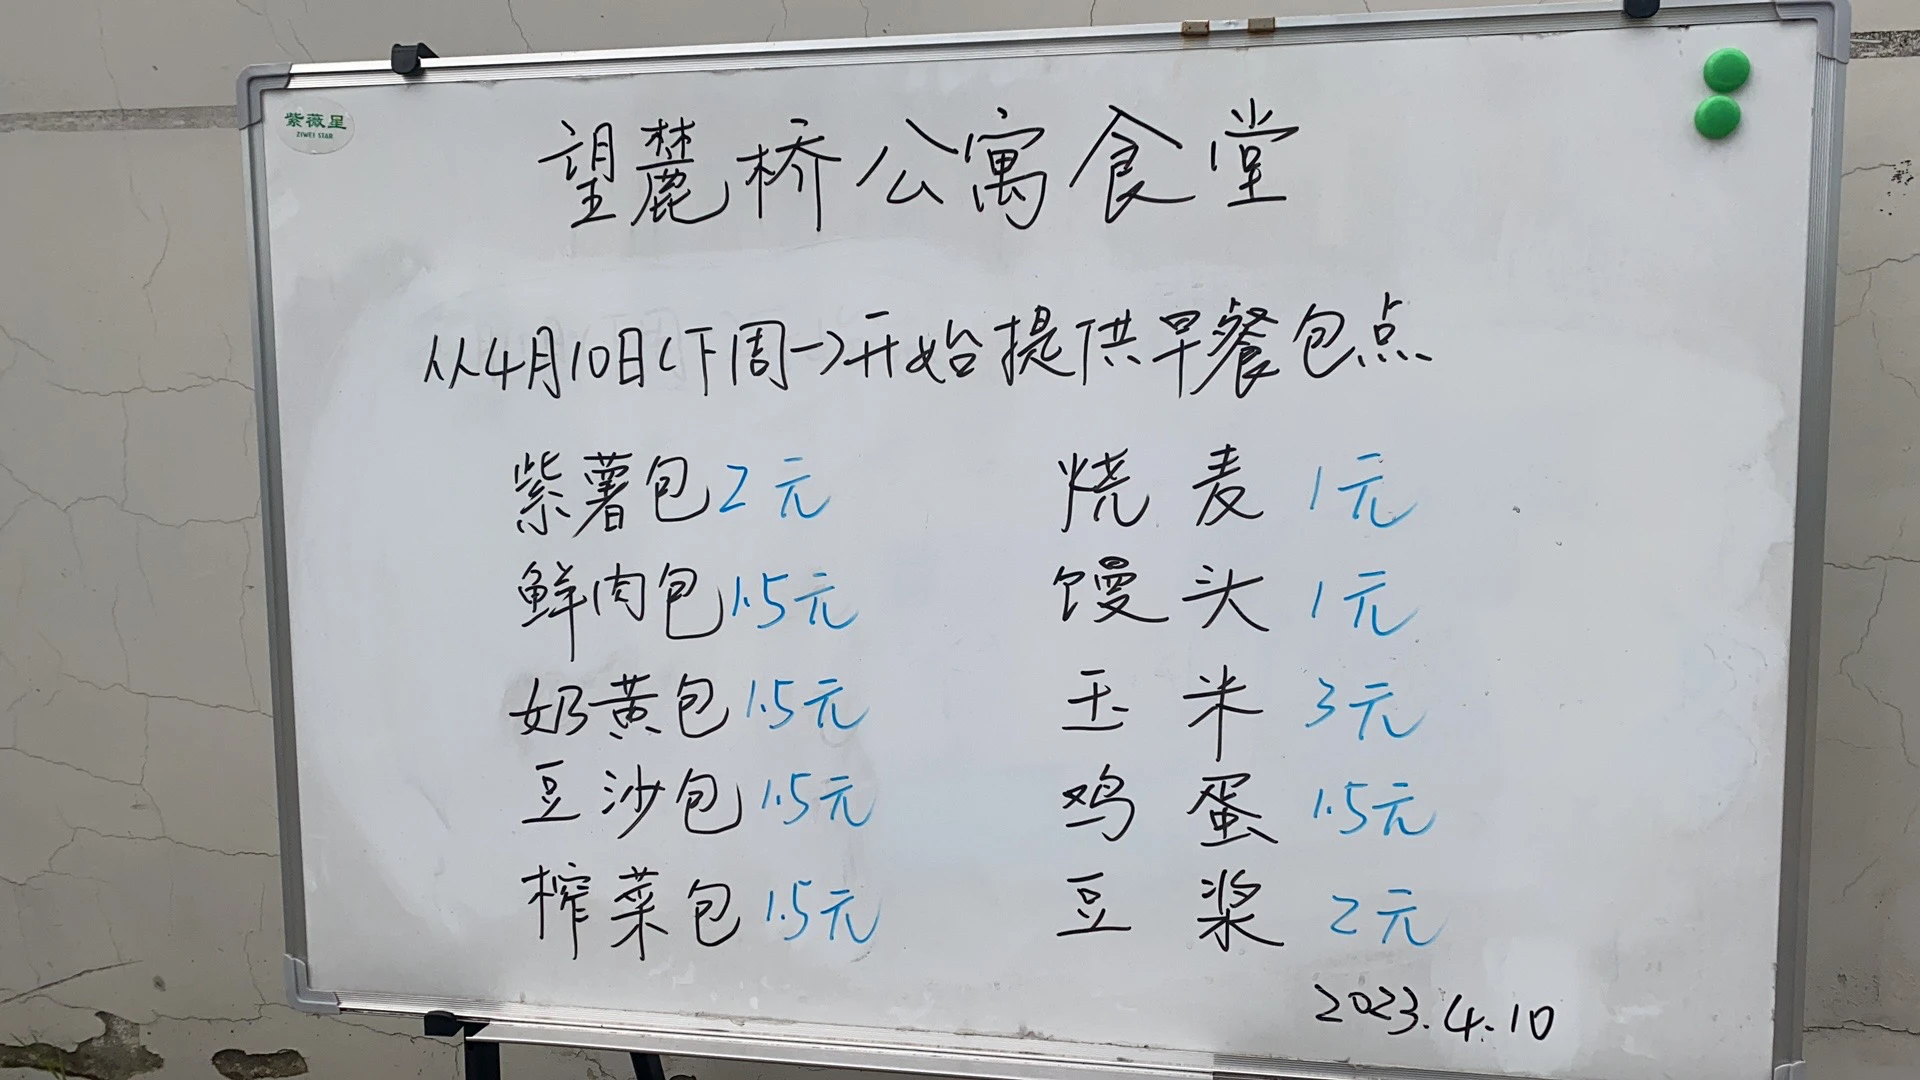 紫薇星
ZIWEI STAR
望麓桥公寓食堂
从4月10日(下周一)开始提供早餐包点
紫薯包2元 烧麦1元
鲜肉包1.5元 馒头1元
奶黄包1.5元 玉米3元
豆沙包1.5元 鸡蛋1.5元
榨菜包1.5元 豆浆2元
2023.4.10